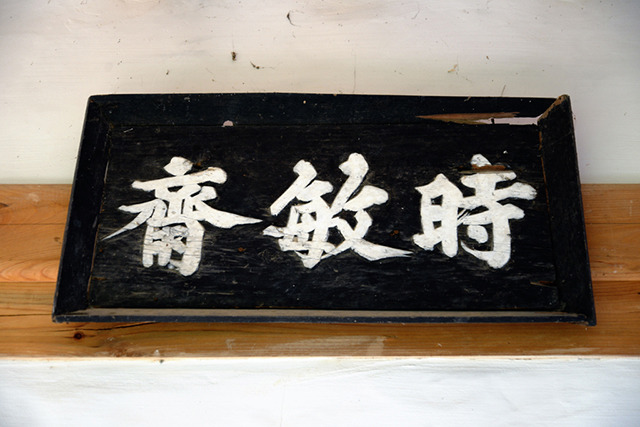 時敏齋